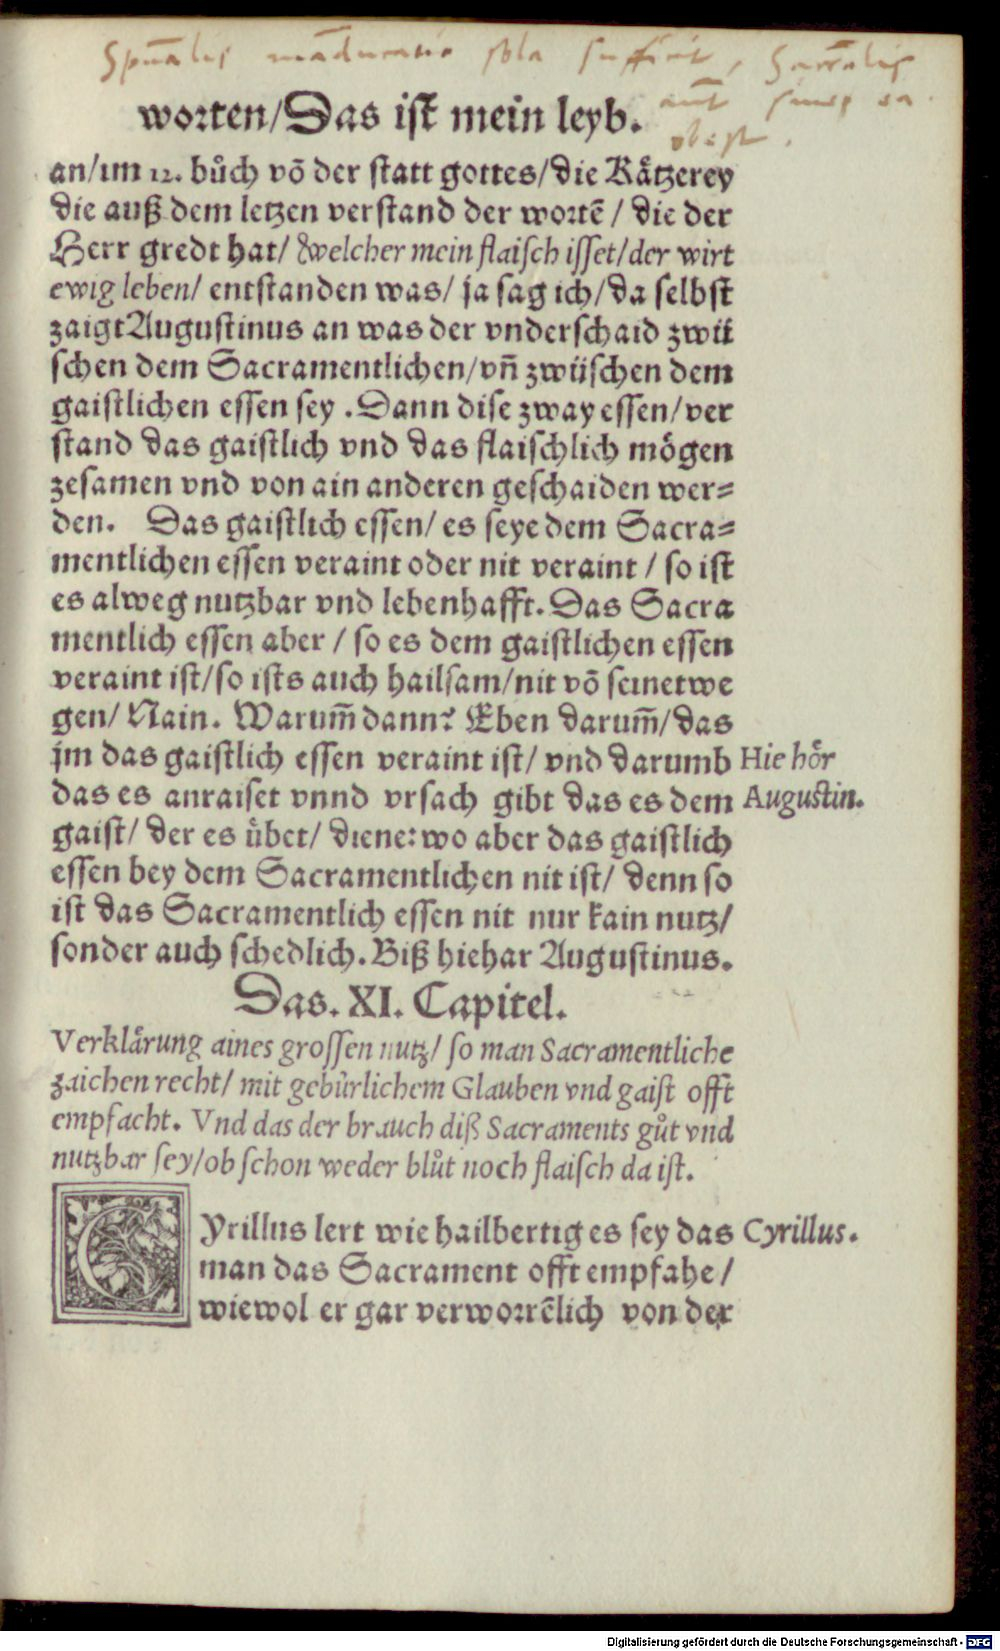 Spūalis māducatio sola sufficit, Sacr̄alis
aūt sine ea
obest.
worten/Das ist mein leyb.
an/im 12. bůch võ der statt gottes/die Kåtzerey
die auß dem letzen verstand der wortē / die der
Herr gredt hat/ welcher mein flaisch isset/der wirt
ewig leben/ entstanden was/ ja sag ich/da selbst
zaigt Augustinus an was der vnderschaid zwü
schen dem Sacramentlichen/vñ zwüschen dem
gaistlichen essen sey . Dann dise zway essen/ver
stand das gaistlich vnd das flaischlich mögen
zesamen vnd von ain anderen geschaiden wer=
den. Das gaistlich essen/ es seye dem Sacra=
mentlichen essen veraint oder nit veraint / so ist
es alweg nutzbar vnd lebenhafft. Das Sacra
mentlich essen aber / so es dem gaistlichen essen
veraint ist/so ists auch hailsam/nit võ seinetwe
gen/ Nain. Warum̃ dann? Eben darum̃/das
jm das gaistlich essen veraint ist/ vnd darumb
Hie hör
das es anraiset vnnd vrsach gibt das es dem
Augustin.
gaist/ der es übet/ diene: wo aber das gaistlich
essen bey dem Sacramentlichen nit ist/ denn so
ist das Sacramentlich essen nit nur kain nutz/
sonder auch schedlich. Biß hiehar Augustinus.
Das. XI. Capitel.
Verklårung aines grossen nutz/ so man Sacramentliche
zaichen recht/ mit gebürlichem Glauben vnd gaist offt
empfacht. Vnd das der brauch diß Sacraments gůt vnd
nutzbar sey/ob schon weder blůt noch flaisch da ist.
Cyrillus lert wie hailbertig es sey das
Cyrillus.
man das Sacrament offt empfahe/
wiewol er gar verworrēlich von der
Digitalisierung gefördert durch die Deutsche Forschungsgemeinschaft - DFG